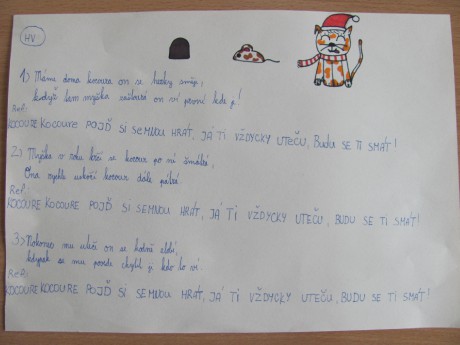 HV
1) Máme doma kocoura on se hezky směje,
kdož tam myška zaškrábá on ví první kde je!
Ref:
KOCOURE KOCOURE POJĎ SI SEMNOU HRÁT, JÁ TI VŽDYCKY UTEČU, BUDU SE TI SMÁT!
2) Myška v rohu krčí se kocour po ní
Ona rychle uskočí kocour dále pátrá
Ref.
KOCOURE KOCOURE POJĎ SI SEMNOU HRÁT, JÁ TI VŽDYCKY UTEČU, BUDU SE TI SMÁT!
3) Nakonec mu uteče on se hodně zlobí,
kdypak se mu povede chytit ji kdo to ví.
Ref:
KOCOURE KOCOURE POJĎ SI SEMNOU HRÁT, JÁ TI VŽDYCKY UTEČU, BUDU SE TI SMÁT!